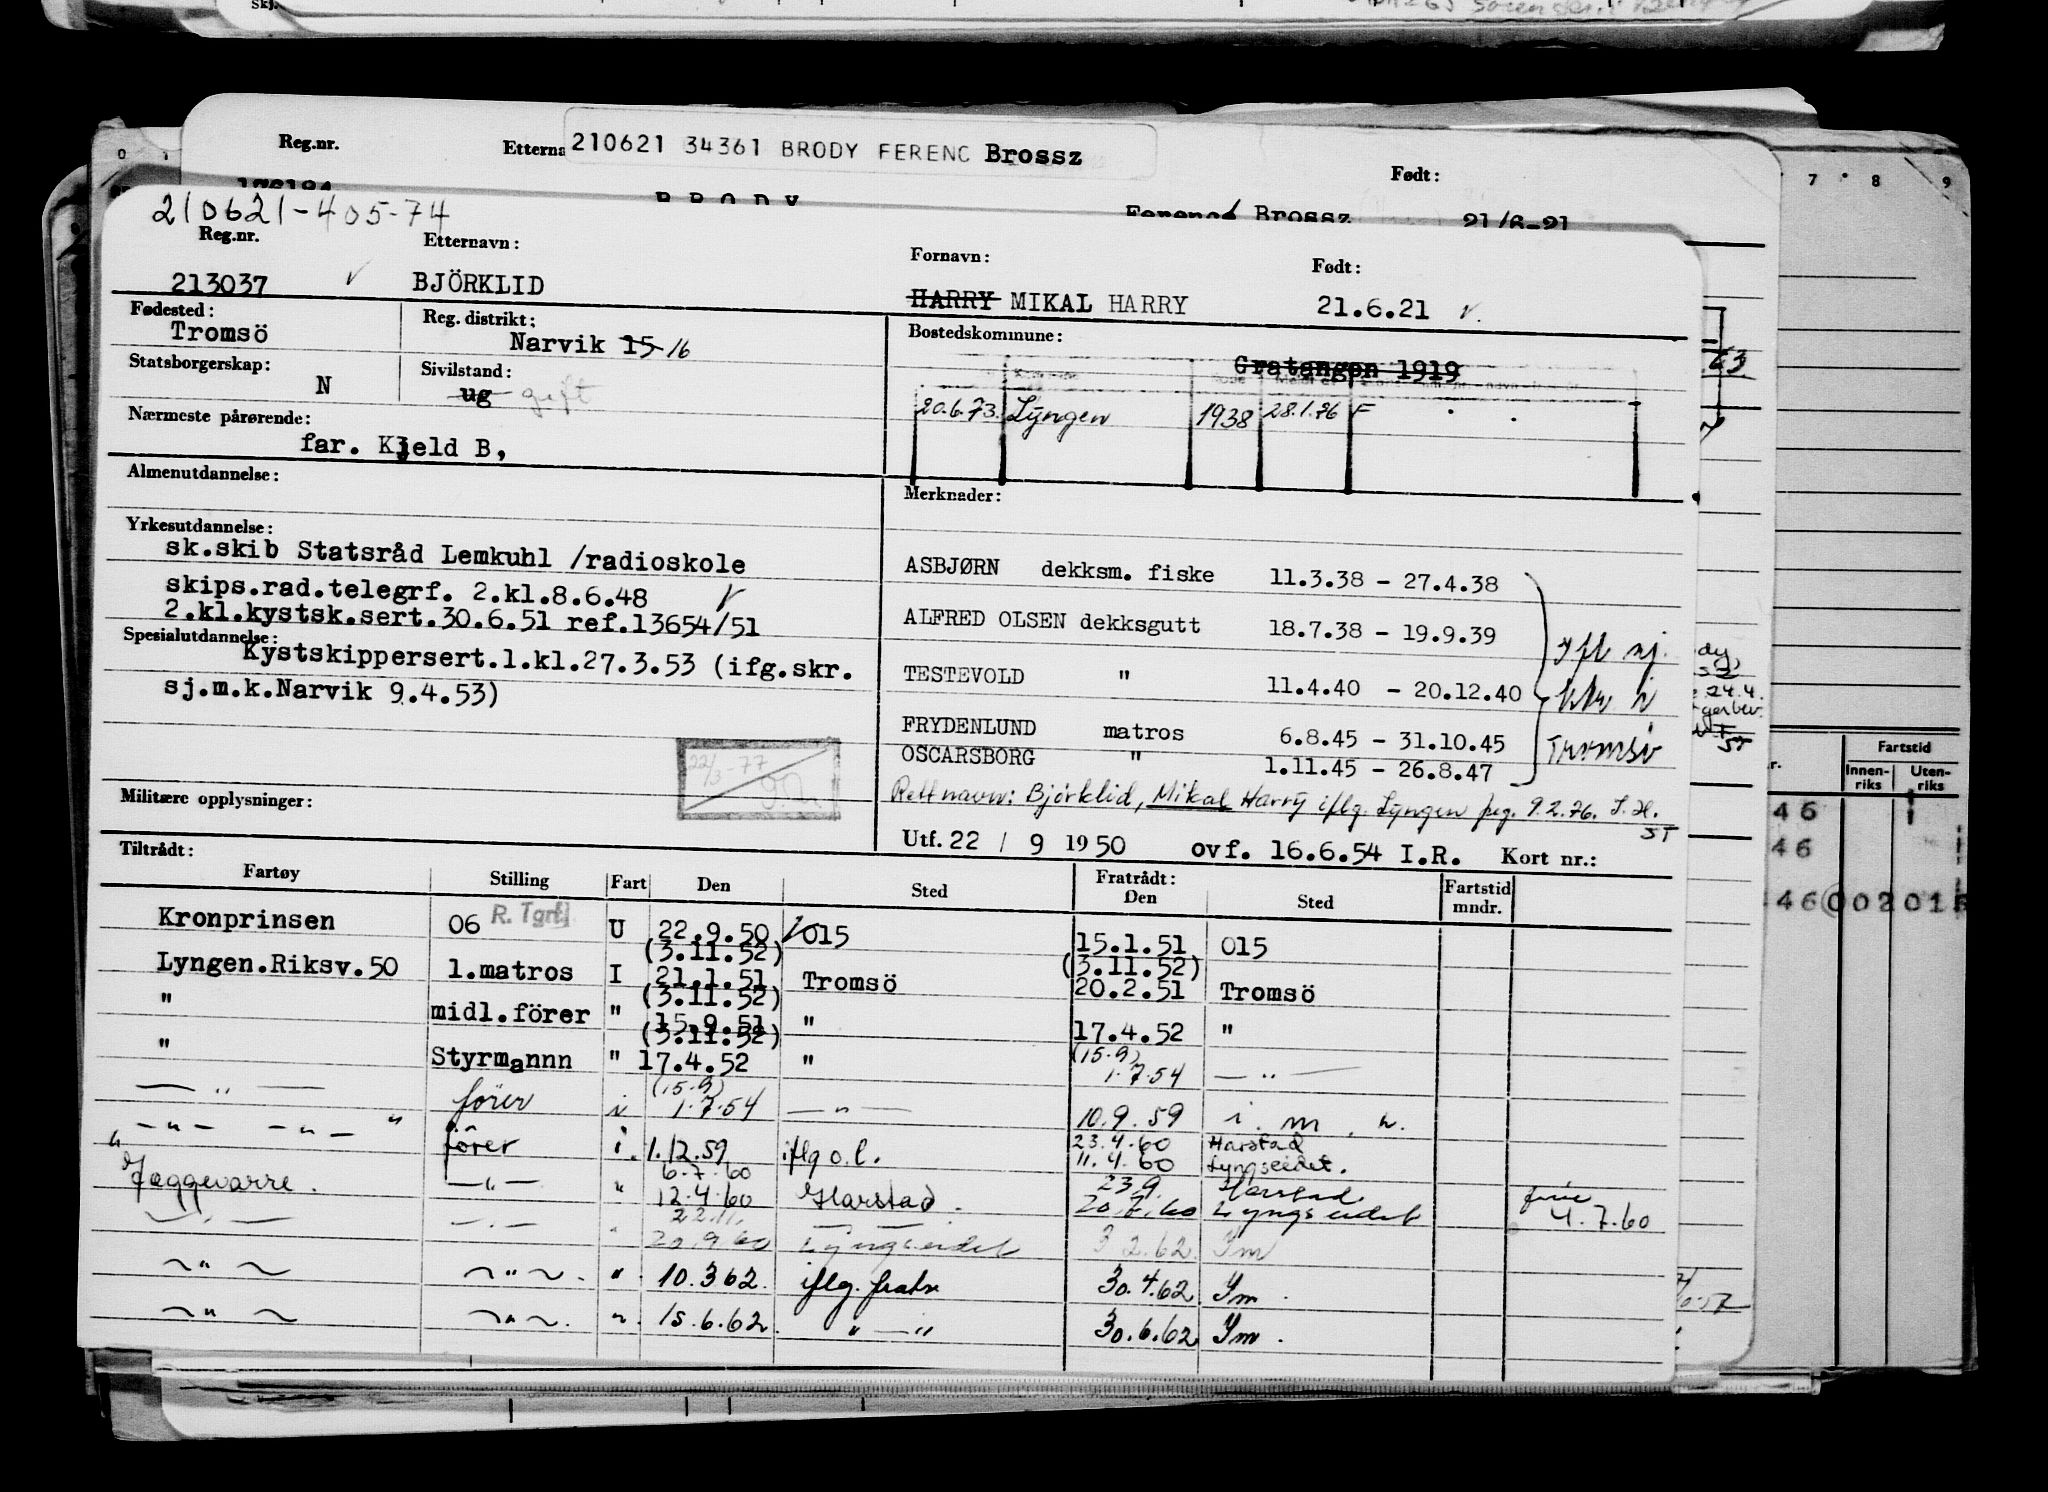 Skj.
Reg.nr.
Etterna
210621 34361 BRODY FERENC Brossz
Født:
0 1
7 8 9
BRODY
Ferenc Brossz
21/6-21
210621-405-74
Reg.nr. Etternavn: Fornavn: Født:
213037 BJÖRKLID HARRY MIKAL HARRY 21.6.21
Fødested: Reg. distrikt: Bostedskommune:
Tromsö Narvik 15 16 Gratangen 1919
Statsborgerskap: Sivilstand:
N ug gift
20.6.73. Lyngen 1938 28.1.76 F
Nærmeste pårørende:
far. Kjeld B,
Almenutdannelse: Merknader:
Yrkesutdannelse:
sk.skib Statsråd Lemkuhl /radioskole
skips.rad.telegrf. 2.kl.8.6.48
2.kl.kystsk.sert.30.6.51 ref.13654/51
Spesialutdannelse:
Kystskippersert.1.kl.27.3.53 (ifg.skr.
sj.m.k.Narvik 9.4.53)
ASBJØRN dekksm. fiske 11.3.38 - 27.4.38
ALFRED OLSEN dekksgutt 18.7.38 - 19.9.39
TESTEVOLD " 11.4.40 - 20.12.40
FRYDENLUND matros 6.8.45 - 31.10.45
OSCARSBORG " 1.11.45 - 26.8.47
Tromsö
22/3-77
Rett navn: Björklid, Mikal Harry iflg. Lyngen freg. 9.2.76. S.H.
ST
Militære opplysninger:
Utf. 22 / 9 1950 ovf. 16.6.54 I.R. Kort nr.:
Tiltrådt: Fratrådt:
Fartøy Stilling Fart Den Sted Den Sted Fartstid mndr.
Kronprinsen 06 R. Tgrf. U 22.9.50 015 15.1.51 015
(3.11.52) (3.11.52)
Lyngen.Riksv.50 1.matros I 21.1.51 Tromsö 20.2.51 Tromsö
(3.11.52)
" midl.förer " 15.9.51 " 17.4.52 "
(3.11.52)
" Styrmannn " 17.4.52 " (15.9) 1.7.54 — " —
— " — förer i (15.9) 1.7.54 — " — 10.9.59 i. m. n.
— " — — " — " förer i. 1.12.59 iflg o.l. 23.4.60 Harstad
11.4.60 Lyngseidet.
" Jæggevarre. — " — " 6.7.60 12.4.60 Harstad. 23.9. Harstad.
20.7.60 Lyngseidet 4.7.60
— " — — " — " 22.11. 20.9.60 Lyngseidet 3 2.62. Ym
— " — — " —. " 10.3 62. iflg. fratr. 30.4.62. Ym.
— " — — " —. ". 15.6.62. " — " 30.6.62 Ym.
63
24.4.
ST
Fartstid
Innen-riks Uten-riks
46
46
46 002 015